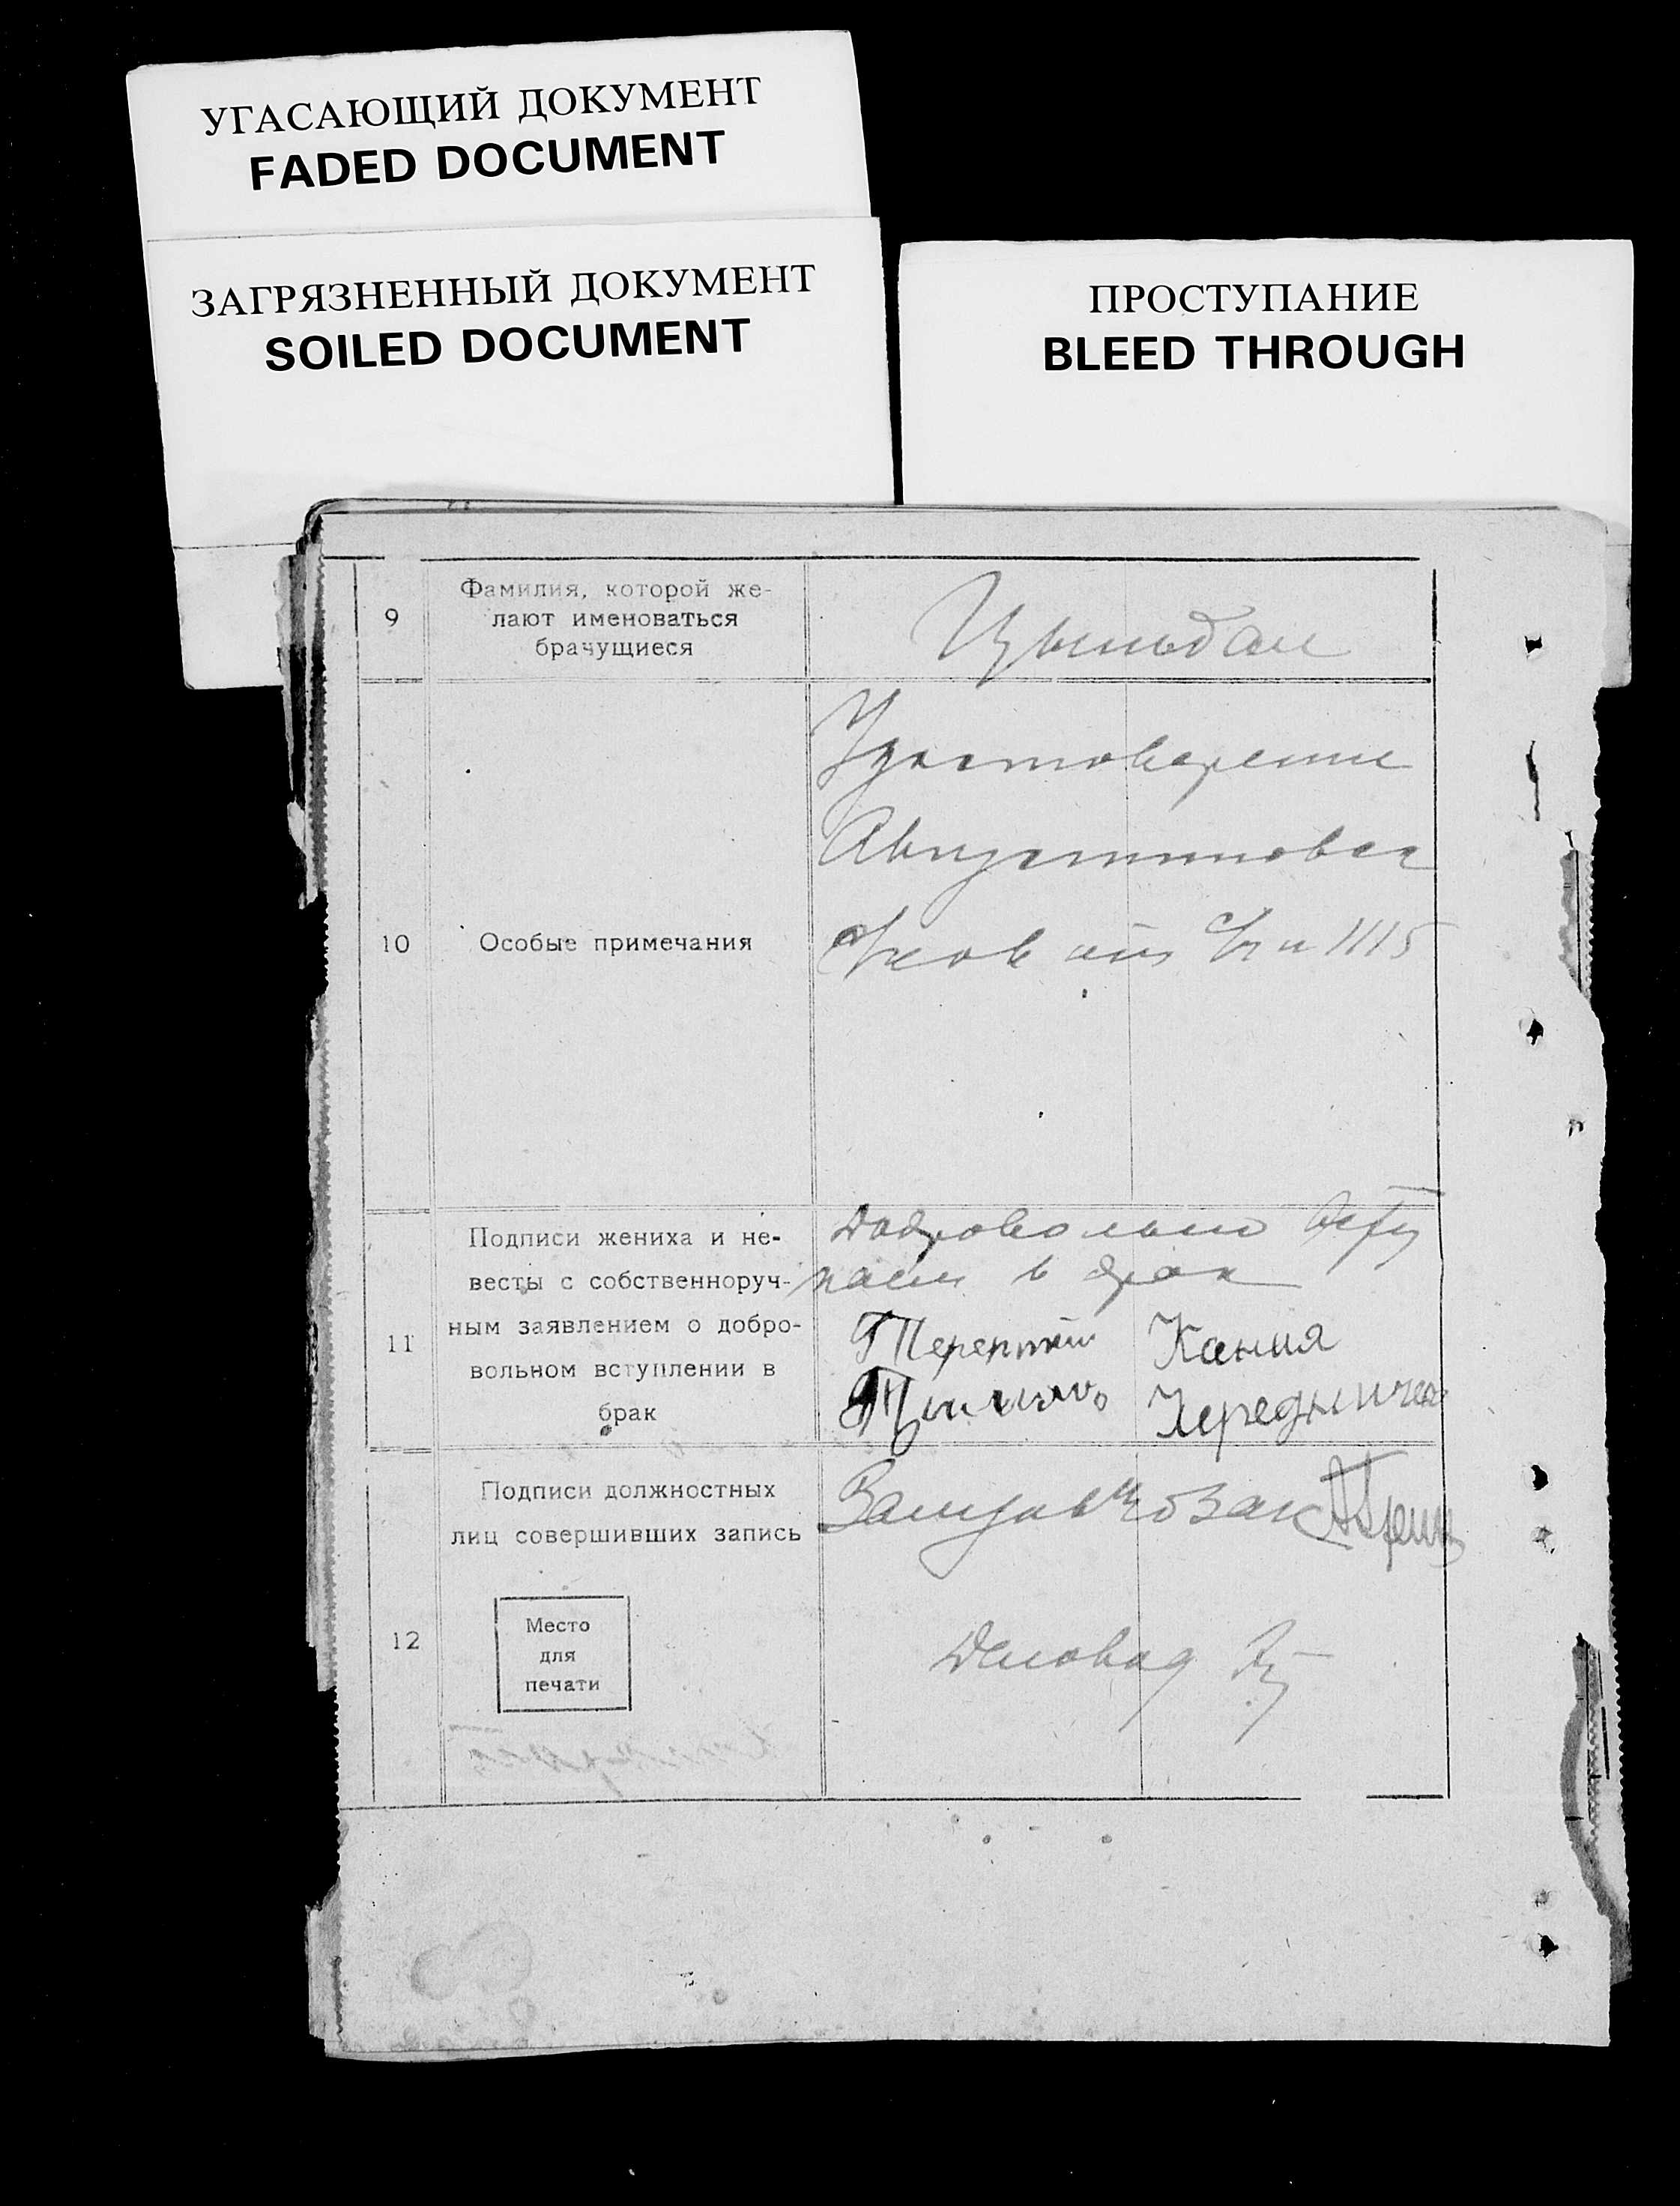 УГАСАЮЩИЙ ДОКУМЕНТ
FADED DOCUMENT
ЗАГРЯЗНЕННЫЙ ДОКУМЕНТ
SOILED DOCUMENT
ПРОСТУПАНИЕ
BLEED THROUGH
9
Фамилия, которой же-
лают именоваться
брачущиеся
10
Особые примечания
Удостоверение
Августиновка
от 1115
11
Подписи жениха и не-
весты с собственноруч-
ным заявлением о добро-
вольном вступлении в
брак
Добровольно
паем в брак
Терентий Ксения
12
Подписи должностных
лиц совершивших запись
Место
для
печати
Деловод